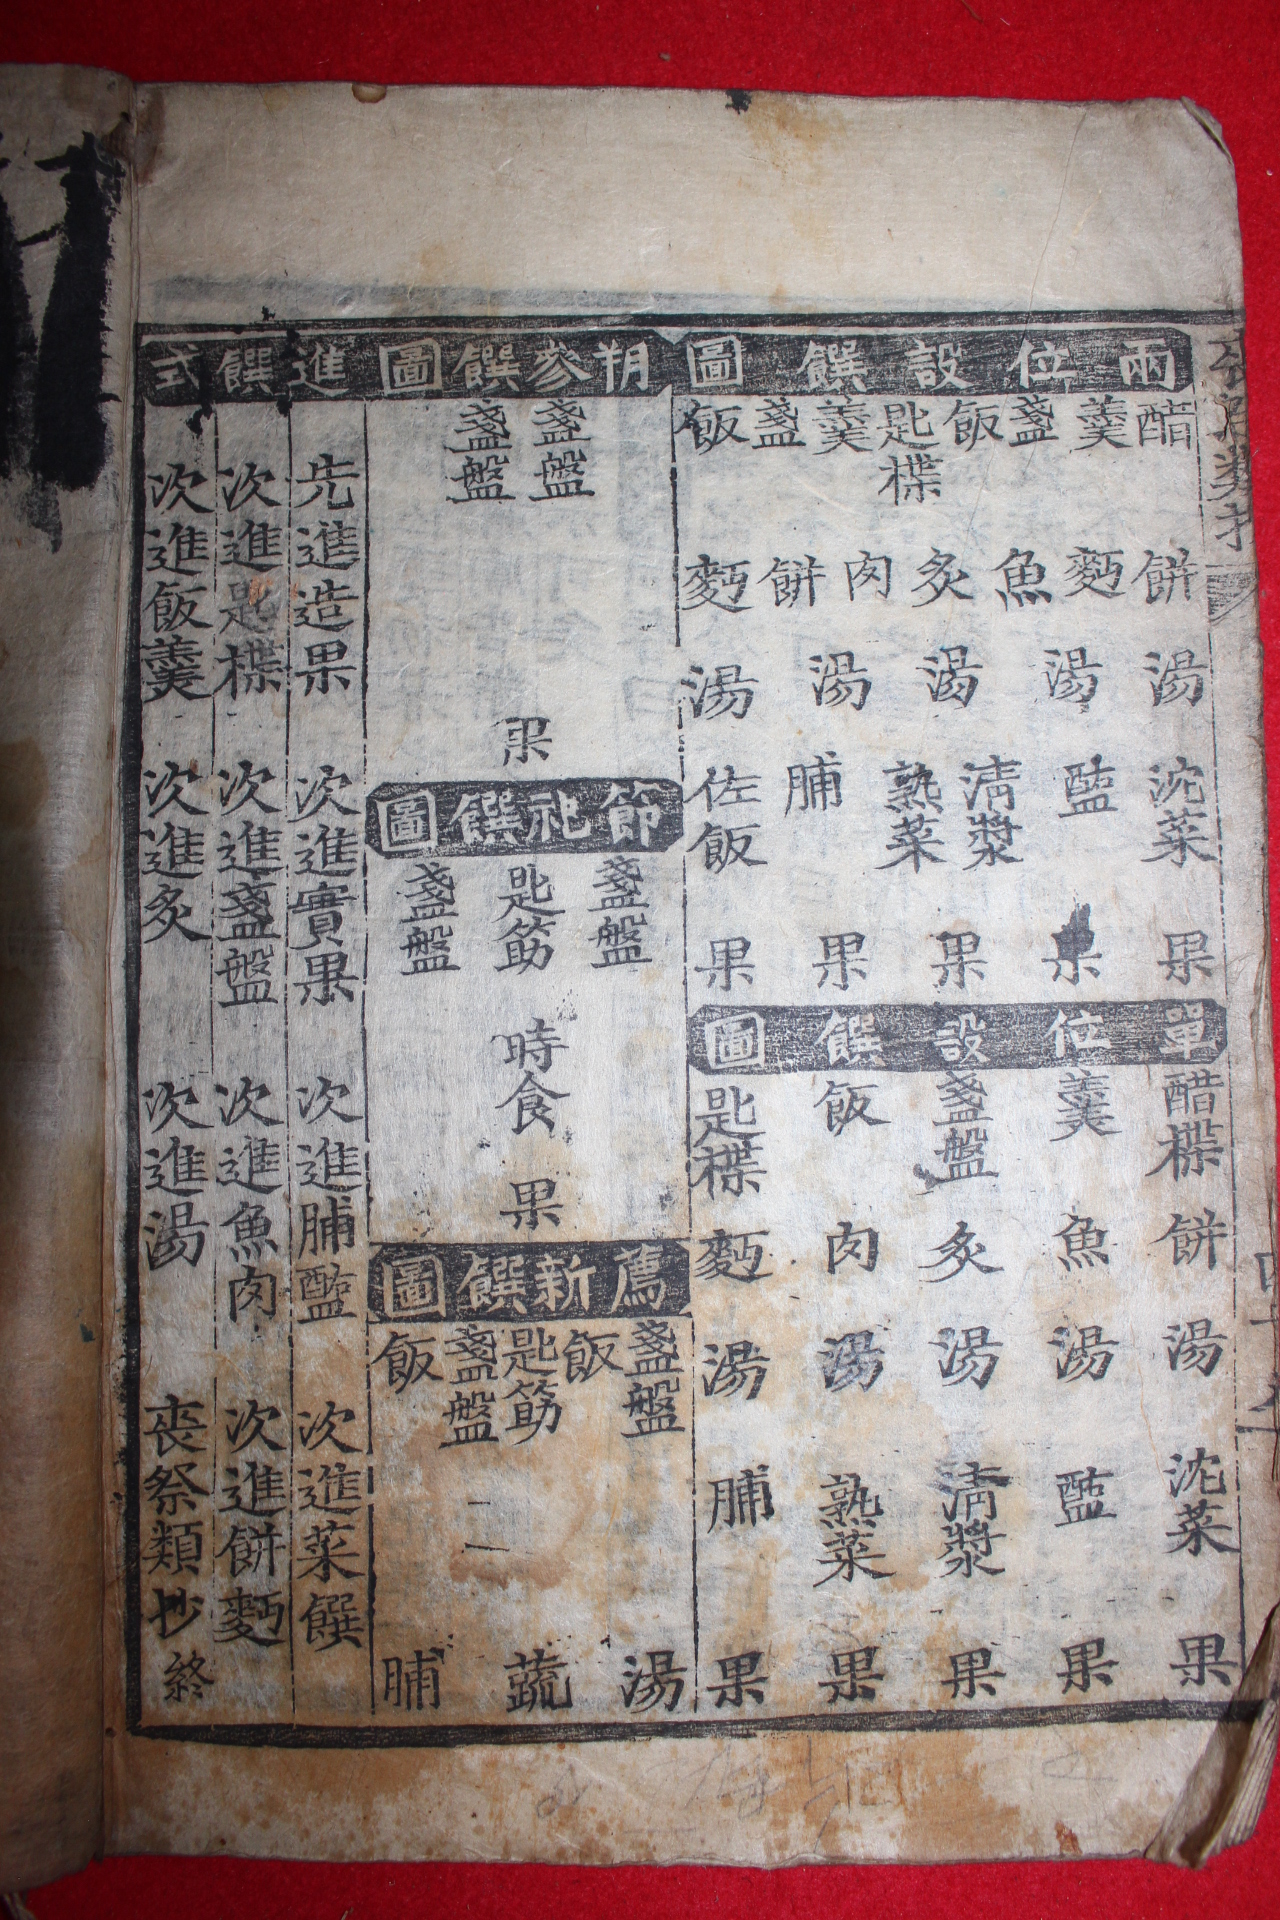 兩位設饌圖
醋羹盞飯匙楪羹盞飯
餠麪魚炙肉餠麪
湯湯湯湯湯
沈菜 醢 淸漿 熟菜 脯 佐飯
果果果果果
單位設饌圖
醋楪 羹 盞盤 飯 匙楪
餠魚炙肉麪
湯湯湯湯湯
沈菜 醢 淸漿 熟菜 脯
果果果果果
朔參饌圖
盞盤 盞盤
果
節祀饌圖
盞盤 匙筯 盞盤
時食
果
薦新饌圖
盞盤 飯 匙筯 盞盤 飯
湯 蔬 脯
進饌式
先進造果 次進實果 次進脯醢 次進菜饌
次進匙楪 次進盞盤 次進魚肉 次進餠麪
次進飯羹 次進炙 次進湯 喪祭類抄 終